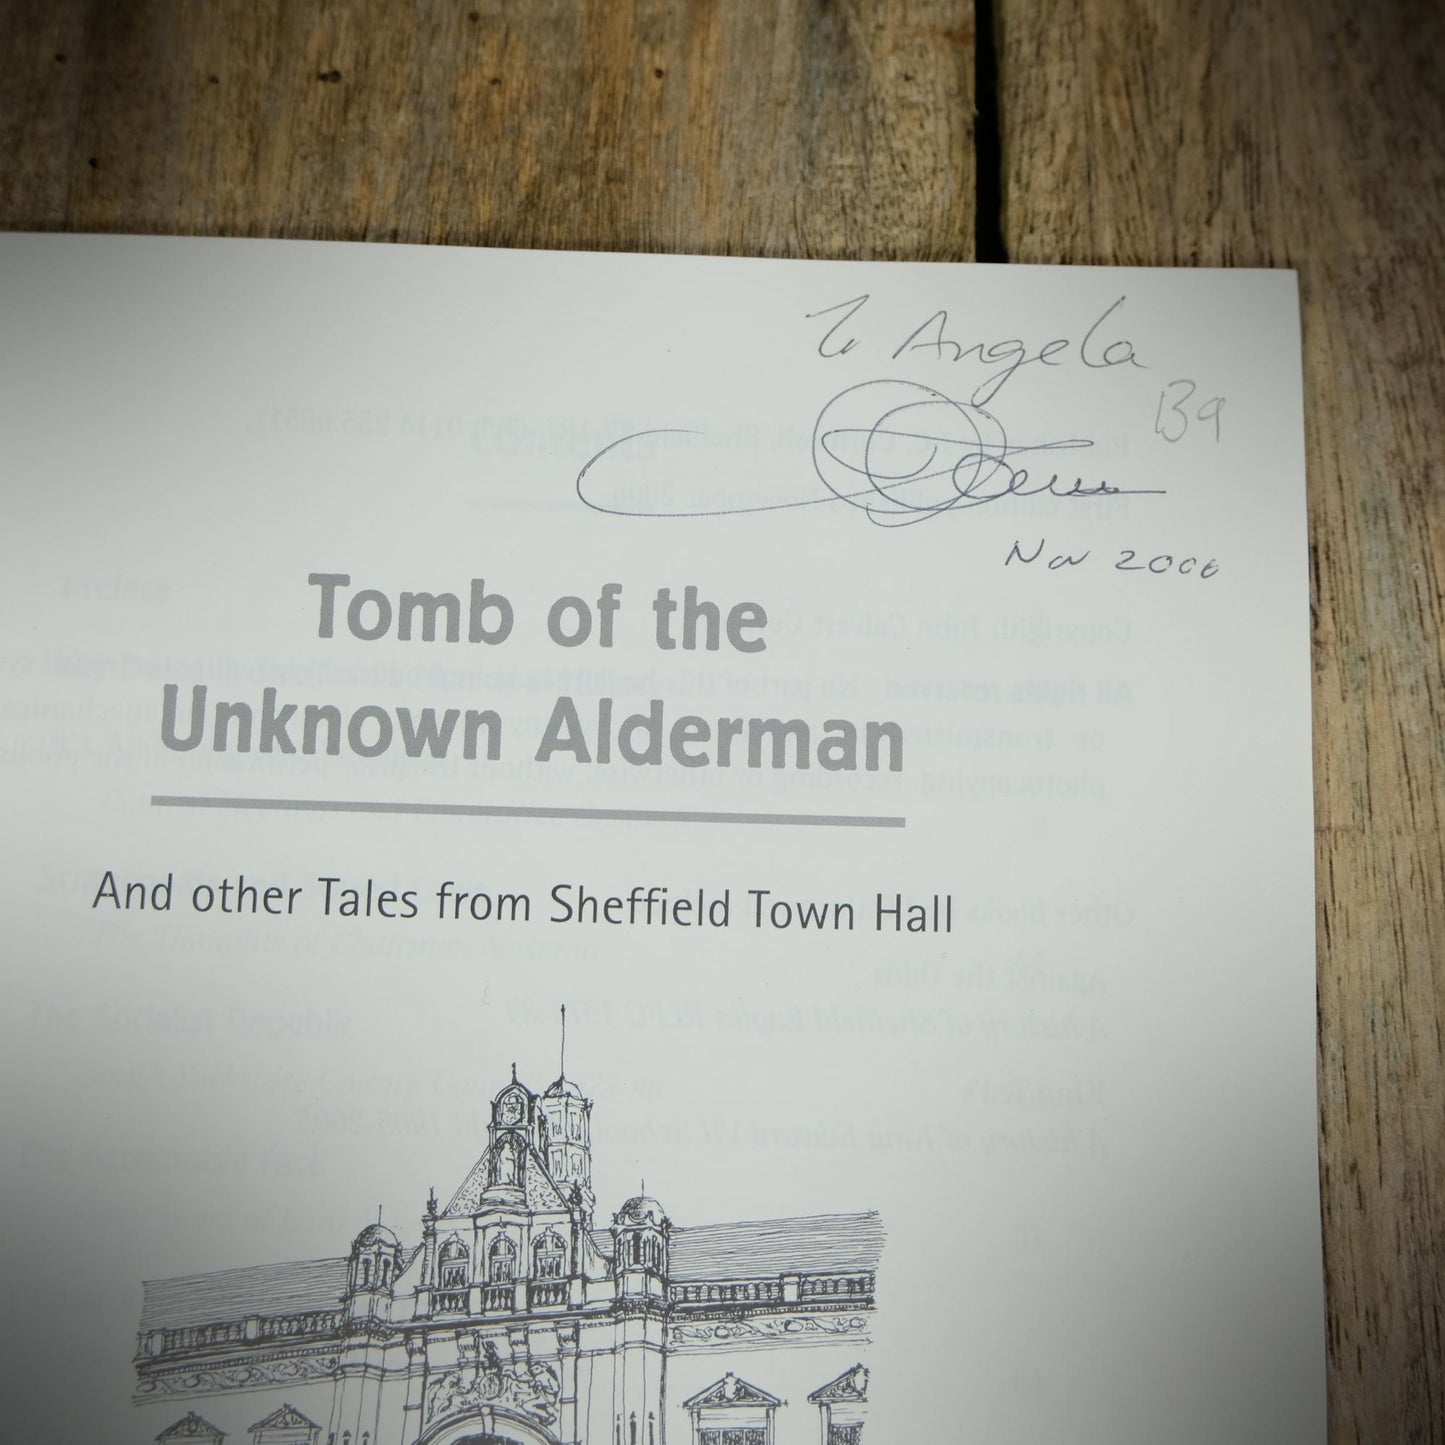 To Angela
B9
Nov 2006
Tomb of the
Unknown Alderman
And other Tales from Sheffield Town Hall